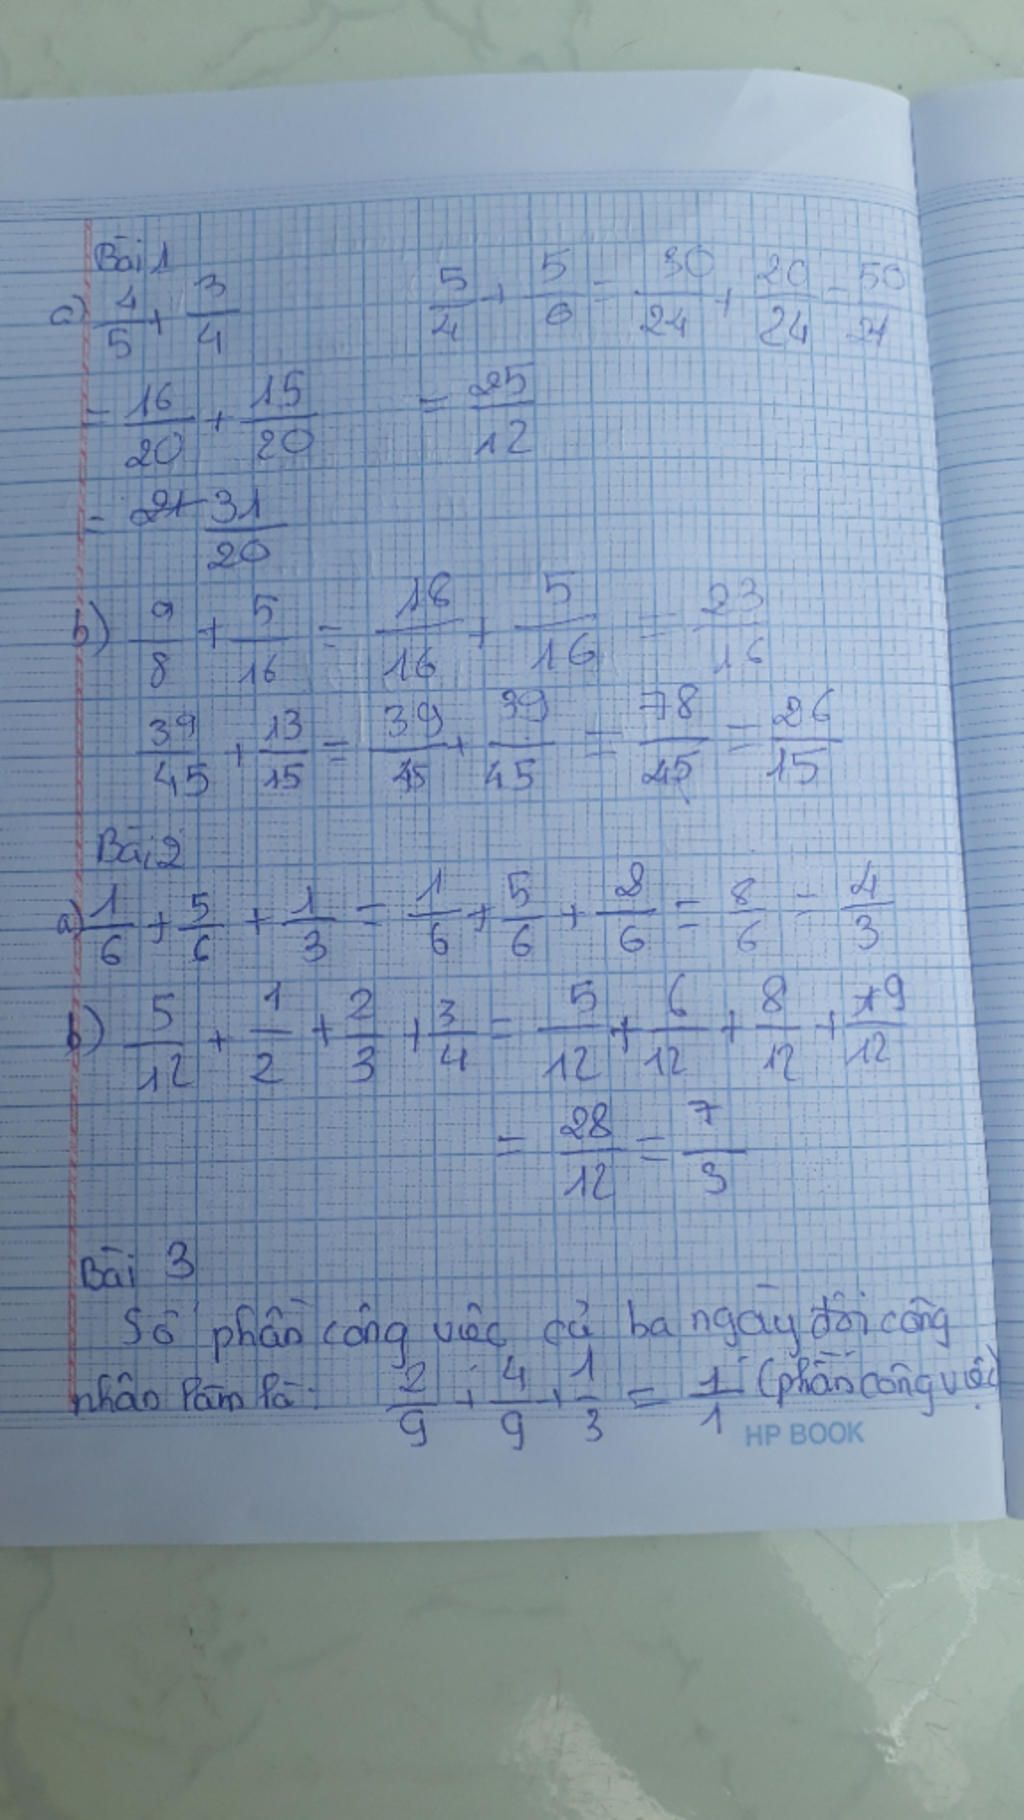 Bài 1
a) 4/5 + 3/4    5/4 + 5/6 = 30/24 + 20/24 = 50/24
= 16/20 + 15/20    = 25/12
= 31/20
b) 9/8 + 5/16 = 18/16 + 5/16 = 23/16
39/45 + 13/15 = 39/45 + 39/45 = 78/45 = 26/15
Bài 2
a) 1/6 + 5/6 + 1/3 = 1/6 + 5/6 + 2/6 = 8/6 = 4/3
b) 5/12 + 1/2 + 2/3 + 3/4 = 5/12 + 6/12 + 8/12 + 9/12
= 28/12 = 7/3
Bài 3
Số phần công việc cả ba ngày đội công
nhân làm là: 2/9 + 4/9 + 1/3 = 1/1 (phần công việc)
HP BOOK